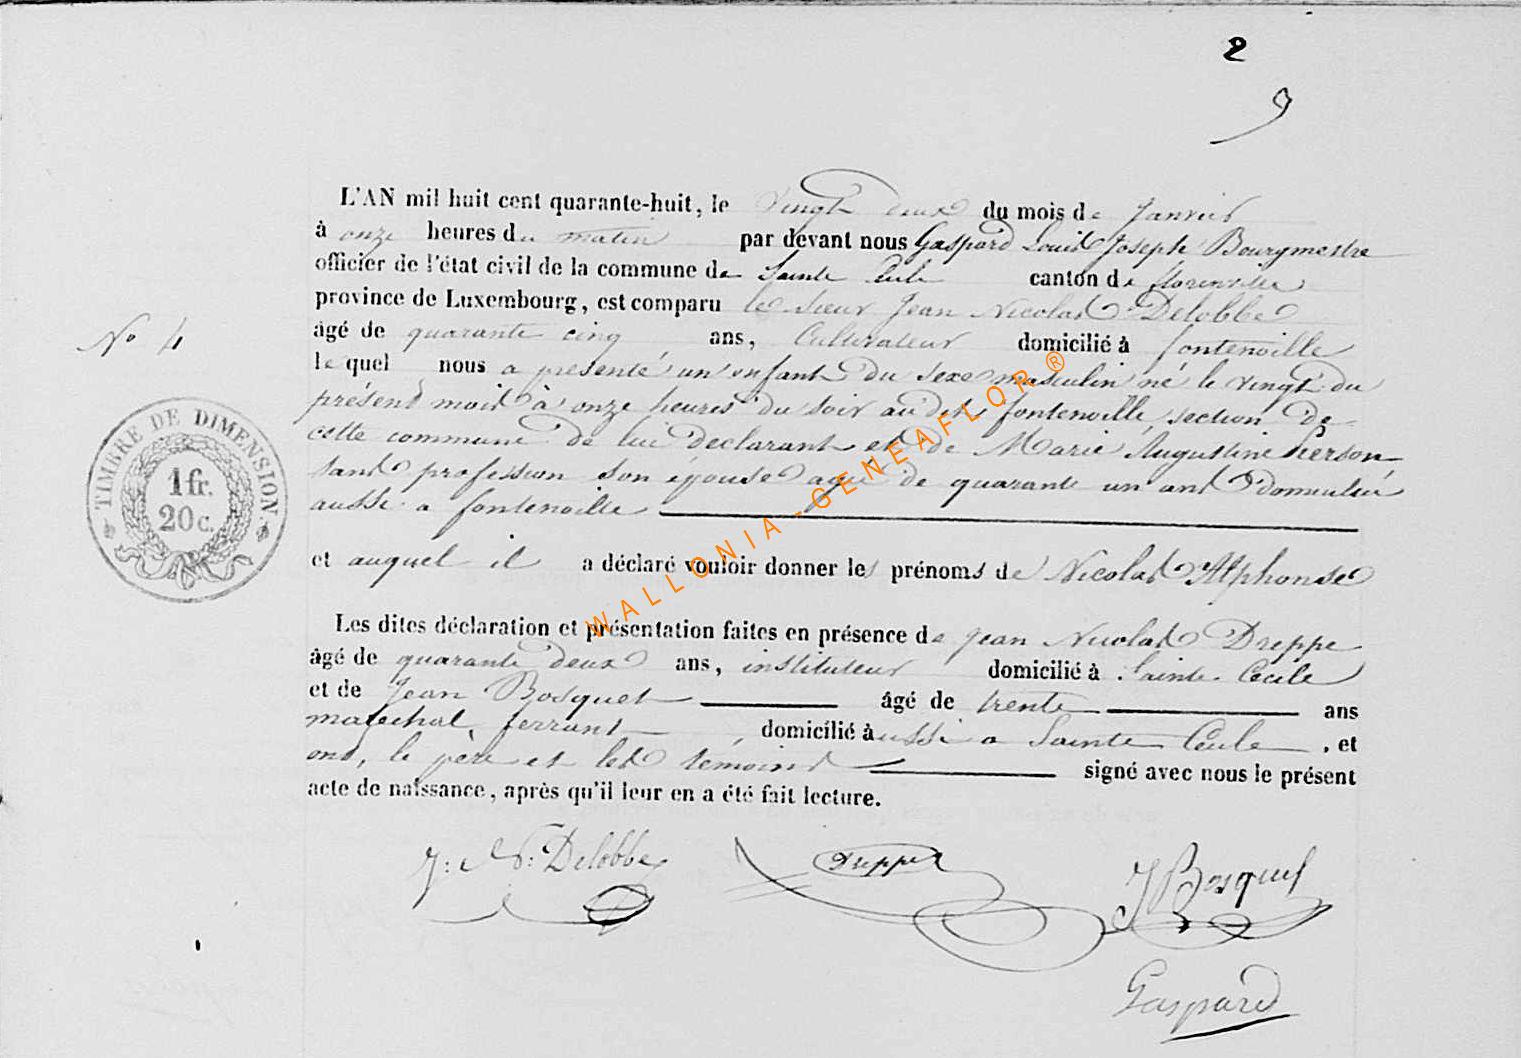 2
9
L'AN mil huit cent quarante-huit, le vingt deux du mois de Janvier
à onze heures du matin par devant nous Gaspard Louis Joseph Bourgmestre
officier de l'état civil de la commune de Sainte Cécile canton de florenville
province de Luxembourg, est comparu le sieur Jean Nicolas Delobbe
No 4
âgé de quarante cinq ans, Cultivateur domicilié à fontenoille
le quel nous a présenté un enfant du sexe masculin né le vingt du
présent mois à onze heures du soir au dit fontenoille, section de
cette commune de lui déclarant et de Marie Augustine Pierson
sans profession son épouse agée de quarante un ans domiciliée
aussi a fontenoille
TIMBRE DE DIMENSION
1 fr.
20 c.
et auquel il a déclaré vouloir donner les prénoms de Nicolas Alphonse
Les dites déclaration et présentation faites en présence de Jean Nicolas Dreppe
âgé de quarante deux ans, instituteur domicilié à Sainte Cécile
et de Jean Bosquet âgé de trente ans
maréchal ferrant, domicilié à aussi a Sainte Cécile, et
ont, le père et les témoins signé avec nous le présent
acte de naissance, après qu'il leur en a été fait lecture.
J: N: Delobbe Dreppe J Bosquet
Gaspard
WALLONIA-GENEAFLOR®